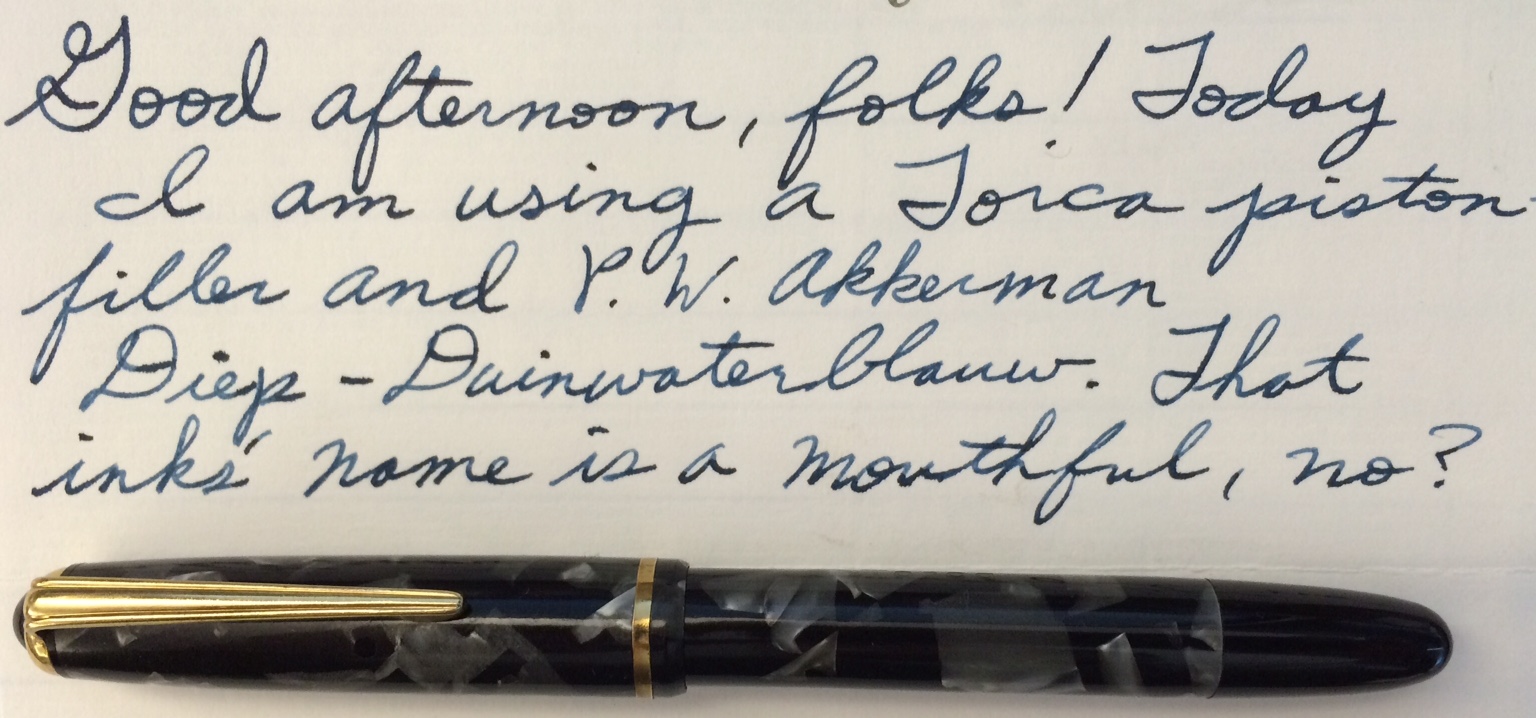 Good afternoon, folks! Today
I am using a Torca piston-
filler and P. W. Akkerman
Diep-Duinwaterblauw. That
inks' name is a mouthful, no?